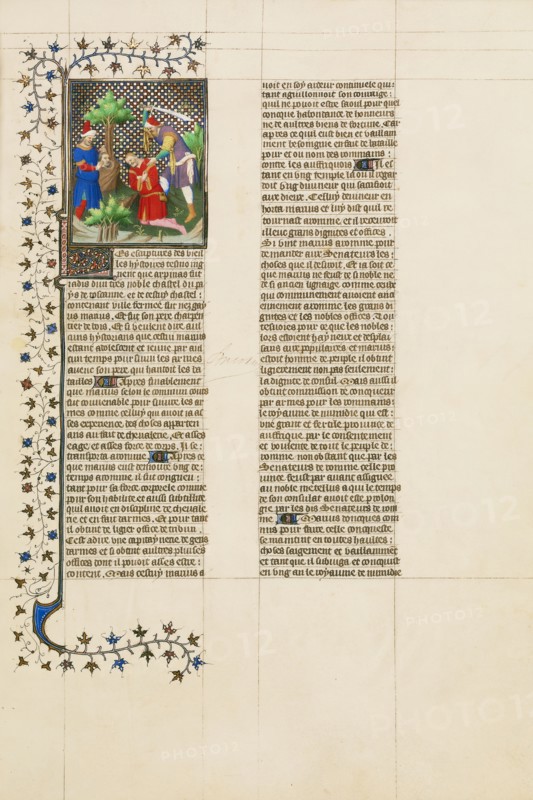 es escriptures des vieil
les hystoires tesmoing
nent que arpinas fut
iadis dun tres noble chastel du pa
contenant ville fermee fut nez gay
us marius. Et fut son pere charpen
tier de bois. Et si veulent dire aul
cuns hystorians que cestui marius
estant adolescent et ieune par aul
cun temps pour suivi les armes
avecque son pere qui hantoit les ba
tailles Apres finablement
que marius selon le commun cours
fut convenable pour suivre les ar
mes comme celluy qui avoit ia as
ses experience des choses apparten
ans au fait de chevalerie. Et asses
eage et asses force de corps. Il se
transporta a romme. Apres ce
que marius eust demoure ung
temps a romme il fut congneu
tant pour sa force corporele comme
pour son habilite et aussi subtillite
quil avoit en discipline de chevale
rie et en fait darmes. Et pour tant
il obtint de legier office de tribun.
Cest a dire une capitaynerie de gens
darmes et si obtint aultres pluises
offices dont il povoit asses estre
content. Mais cestuy marius a
voit en soy ardeur continuele qui
tant aguillonnoit son courage
quil ne povoit estre saoul pour quel
conque habondance de honneurs
ne de aultres biens de fortune. Car
apres ce quil eust bien et vaillam
ment besongne en fait de bataille
pour et ou nom des rommains
contre les auffriquois Il es
tant en ung temple la ou il regar
doit ung devineur qui sacrifioit
aux dieux. Cestuy devineur en
horta marius et luy dist quil re
tournast a romme, et il recevroit
illeuc grans dignites et offices.
Si vint marius a romme pour
demander aux Senateurs les
choses que il desiroit. Et ia soit ce
que marius ne feust de si noble ne
de si ancien lignaige comme ceulx
qui communement avoient anci
ennement a romme les grans di
gnites et les nobles offices. Et ou
tesvoies pour ce que les nobles
lors estoient hayneux et desplai
sans aux populaires et marius
estoit homme de peuple il obtint
ligierement non pas seulement
la dignite de consul. Mais aussi il
obtint commission de conquerir
par armes pour les rommains
le royaume de numidie qui est
une grant et fertile province de
auffrique. par le consentement
et voulente de tout le peuple de
romme. non obstant que par les
Senateurs de romme celle pro
vince feust par avant assignee
au noble metellus a qui le temps
de son consulat avoit este prolon
gie par les dis Senateurs de rom
me. Marius doncques com
mis pour faire celle conqueste.
se maintint en toutes haultes
choses saigement et vaillamment
et tant que il subiuga et conquist
en ung an le royaume de numidie
PHOTO12